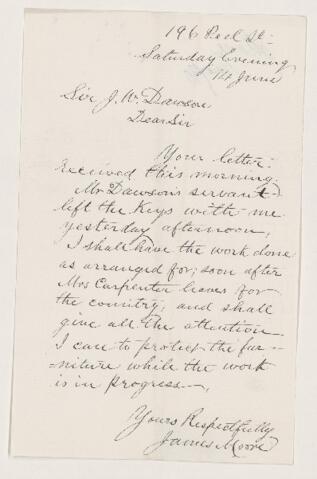 196 Peel St:
Saturday Evening
14 June
Sir J. W. Dawson
Dear Sir
Your letter:
received this morning.
Mr Dawson's servant
left the Keys with me
yesterday afternoon,
I shall have the work done
as arranged for; soon after
Mrs Carpenter leaves for
the country; and shall
give all the attention
I can to protect the fur=
=niture while the work
is in progress—.
Yours Respectfully
James Moore